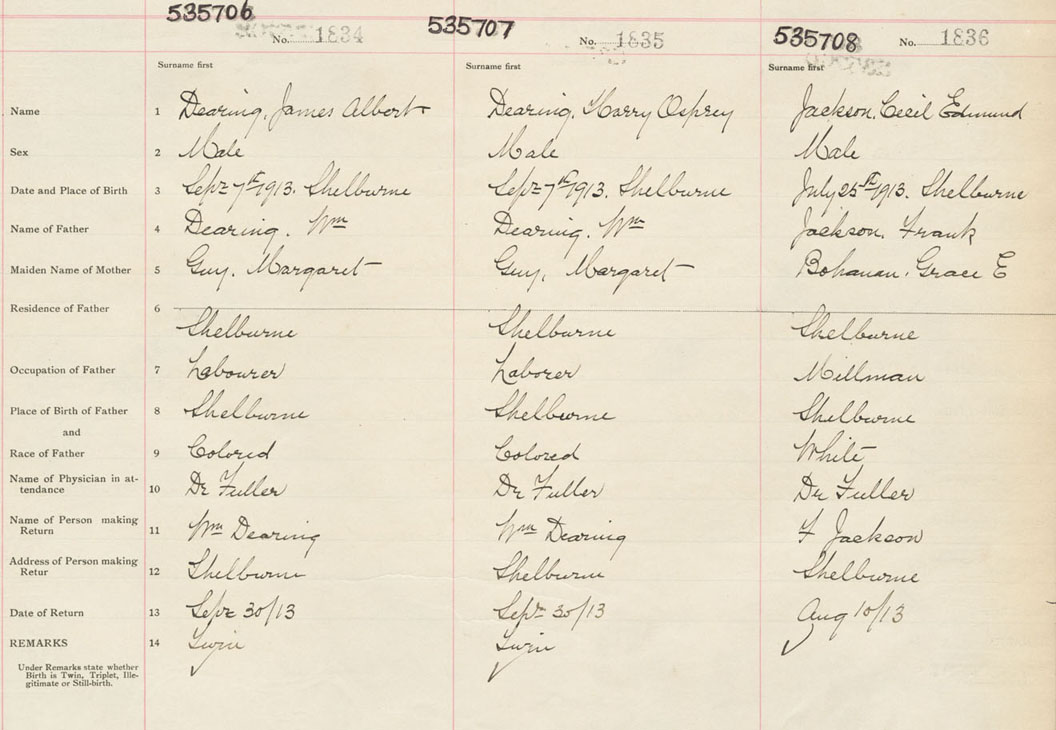 535706 No. 1834 535707 No. 1835 535708 No. 1836
Surname first Surname first Surname first
Name 1 Dearing, James Albert Dearing, Harry Osprey Jackson, Cecil Edmund
Sex 2 Male Male Male
Date and Place of Birth 3 Sept 7th 1913. Shelburne Sept 7th 1913. Shelburne July 25th 1913. Shelburne
Name of Father 4 Dearing. Wm Dearing. Wm Jackson. Frank
Maiden Name of Mother 5 Guy. Margaret Guy. Margaret Bohanan. Grace E
Residence of Father 6
Shelburne Shelburne Shelburne
Occupation of Father 7 Labourer Laborer Millman
Place of Birth of Father 8 Shelburne Shelburne Shelburne
and
Race of Father 9 Colored Colored White
Name of Physician in at-
tendance 10 Dr Fuller Dr Fuller Dr Fuller
Name of Person making
Return 11 Wm Dearing Wm Dearing F Jackson
Address of Person making
Retur 12 Shelburne Shelburne Shelburne
Date of Return 13 Sept 30/13 Sept 30/13 Aug 10/13
REMARKS 14 Twin Twin
Under Remarks state whether
Birth is Twin, Triplet, Ille-
gitimate or Still-birth.